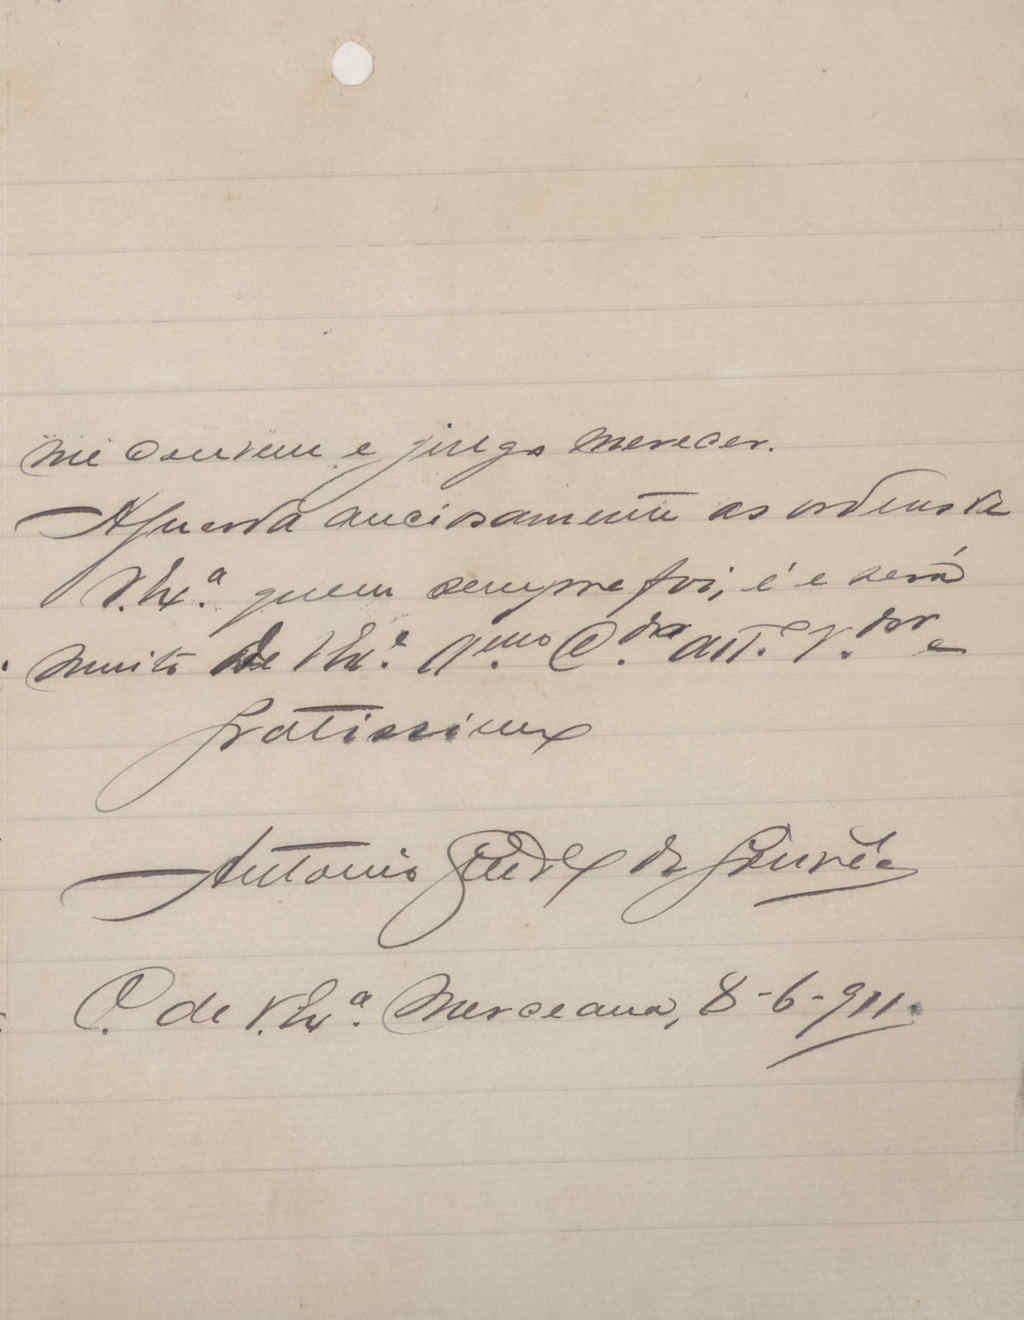 me convem e julgo merecer.
Aguarda anciosamente as ordens de
V. Ex.ª quem sempre foi, é e será
Muito de V. Ex.ª C.do att.º V.dor e
gratissimo
Antonio Guedes de Gouvêa
C. de V. Ex.ª Merceana, 8-6-911.